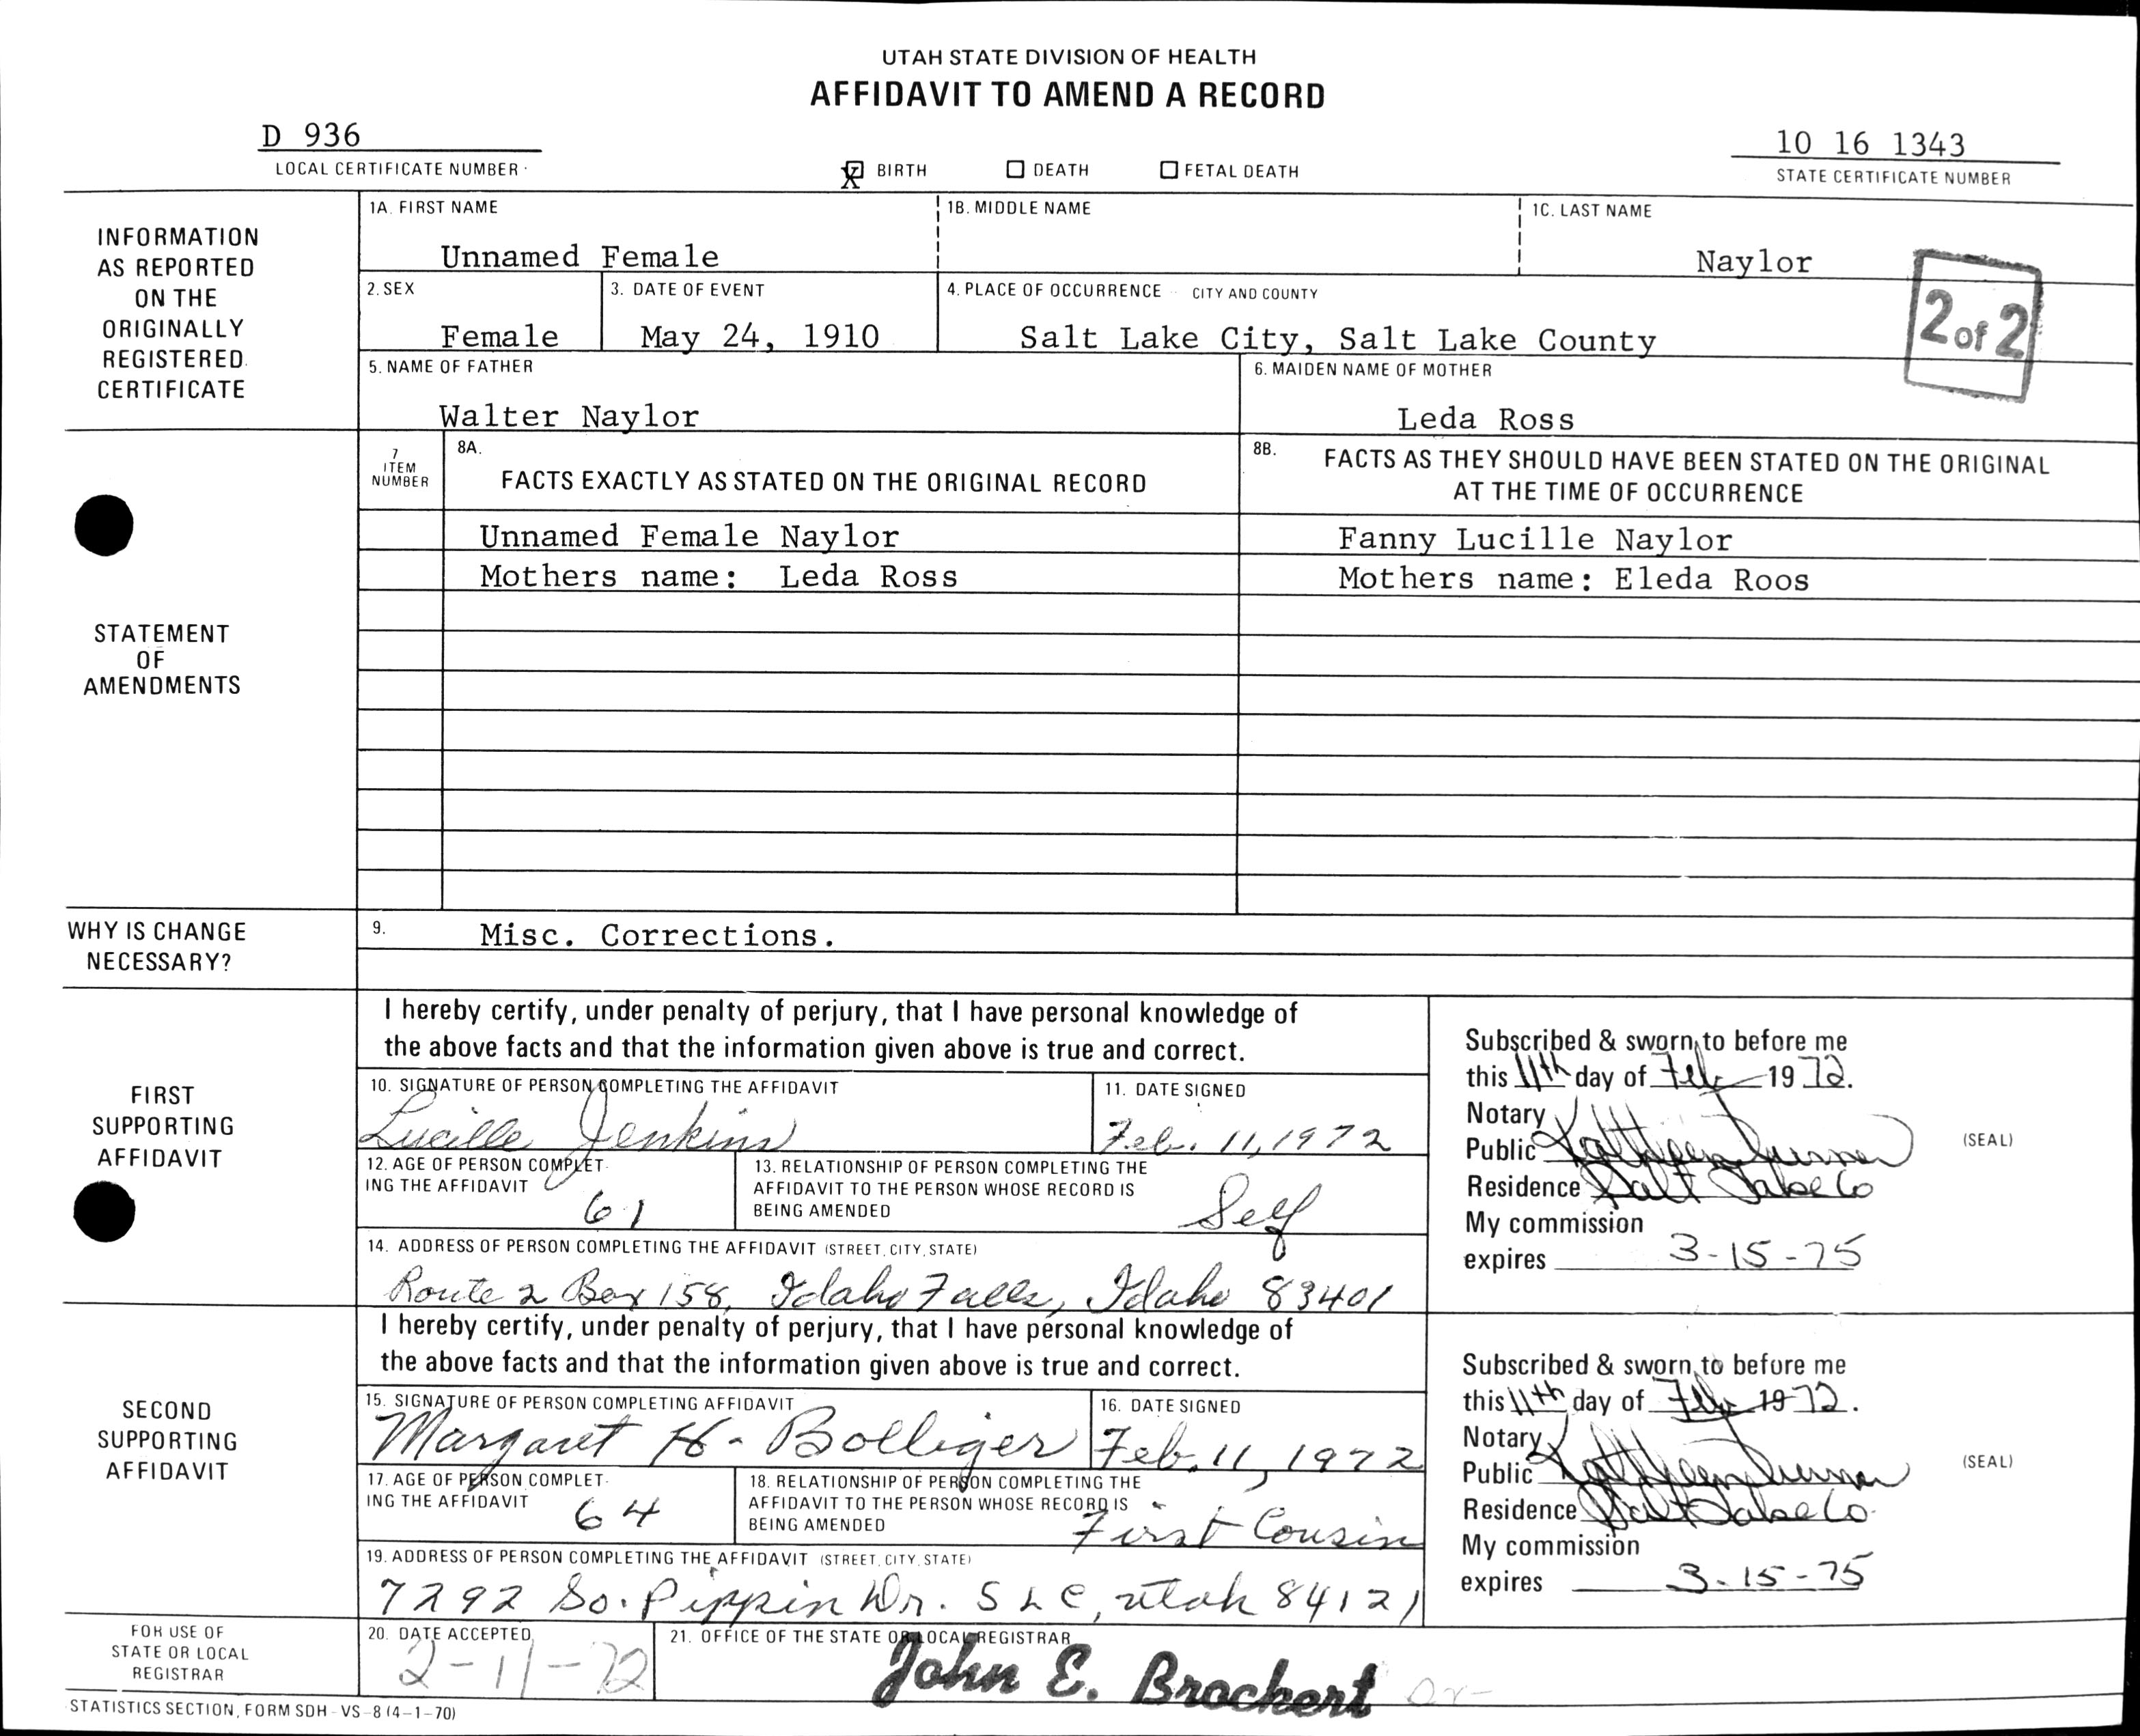 UTAH STATE DIVISION OF HEALTH
AFFIDAVIT TO AMEND A RECORD
D 936
LOCAL CERTIFICATE NUMBER
X BIRTH DEATH FETAL DEATH
10 16 1343
STATE CERTIFICATE NUMBER
INFORMATION
AS REPORTED
ON THE
ORIGINALLY
REGISTERED
CERTIFICATE
1A. FIRST NAME
Unnamed Female
1B. MIDDLE NAME
1C. LAST NAME
Naylor
2. SEX
Female
3. DATE OF EVENT
May 24, 1910
4. PLACE OF OCCURRENCE CITY AND COUNTY
Salt Lake City, Salt Lake County
2 of 2
5. NAME OF FATHER
Walter Naylor
6. MAIDEN NAME OF MOTHER
Leda Ross
STATEMENT
OF
AMENDMENTS
7
ITEM
NUMBER
8A.
FACTS EXACTLY AS STATED ON THE ORIGINAL RECORD
8B.
FACTS AS THEY SHOULD HAVE BEEN STATED ON THE ORIGINAL
AT THE TIME OF OCCURRENCE
Unnamed Female Naylor
Fanny Lucille Naylor
Mothers name: Leda Ross
Mothers name: Eleda Roos
WHY IS CHANGE
NECESSARY?
9. Misc. Corrections.
FIRST
SUPPORTING
AFFIDAVIT
I hereby certify, under penalty of perjury, that I have personal knowledge of
the above facts and that the information given above is true and correct.
10. SIGNATURE OF PERSON COMPLETING THE AFFIDAVIT
Lucille Jenkins
11. DATE SIGNED
Feb. 11, 1972
12. AGE OF PERSON COMPLET-
ING THE AFFIDAVIT
61
13. RELATIONSHIP OF PERSON COMPLETING THE
AFFIDAVIT TO THE PERSON WHOSE RECORD IS
BEING AMENDED
Self
14. ADDRESS OF PERSON COMPLETING THE AFFIDAVIT (STREET, CITY, STATE)
Route 2 Box 158, Idaho Falls, Idaho 83401
Subscribed & sworn to before me
this 11th day of Feb 1972.
Notary
Public Kathleen
Residence Salt Lake Co
My commission
expires 3-15-75
(SEAL)
SECOND
SUPPORTING
AFFIDAVIT
I hereby certify, under penalty of perjury, that I have personal knowledge of
the above facts and that the information given above is true and correct.
15. SIGNATURE OF PERSON COMPLETING AFFIDAVIT
Margaret H. Bolliger
16. DATE SIGNED
Feb. 11, 1972
17. AGE OF PERSON COMPLET-
ING THE AFFIDAVIT
64
18. RELATIONSHIP OF PERSON COMPLETING THE
AFFIDAVIT TO THE PERSON WHOSE RECORD IS
BEING AMENDED
First Cousin
19. ADDRESS OF PERSON COMPLETING THE AFFIDAVIT (STREET, CITY, STATE)
7292 So. Pippin Dr. SLC, Utah 84121
Subscribed & sworn to before me
this 11th day of Feb 1972.
Notary
Public Kathleen
Residence Salt Lake Co.
My commission
expires 3-15-75
(SEAL)
FOR USE OF
STATE OR LOCAL
REGISTRAR
20. DATE ACCEPTED
2-11-72
21. OFFICE OF THE STATE OR LOCAL REGISTRAR
John E. Brockert
STATISTICS SECTION, FORM SDH-VS-8 (4-1-70)